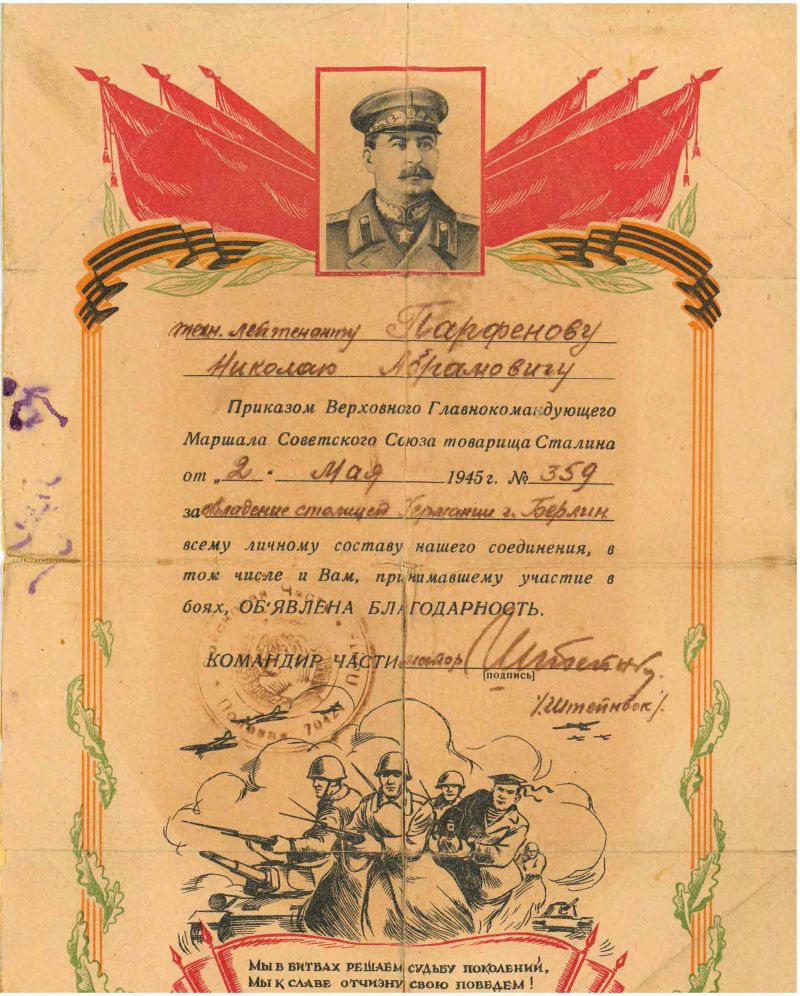 техн. лейтенанту Парфенову
Николаю Абрамовичу
Приказом Верховного Главнокомандующего
Маршала Советского Союза товарища Сталина
от „2“ Мая 1945 г. № 359
за овладение столицей Германии г. Берлин
всему личному составу нашего соединения, в
том числе и Вам, принимавшему участие в
боях, ОБ'ЯВЛЕНА БЛАГОДАРНОСТЬ.
КОМАНДИР ЧАСТИ майор
(подпись)
/Штейнбок/.
Полевая
МЫ В БИТВАХ РЕШАЕМ СУДЬБУ ПОКОЛЕНИЙ,
МЫ К СЛАВЕ ОТЧИЗНУ СВОЮ ПОВЕДЕМ!